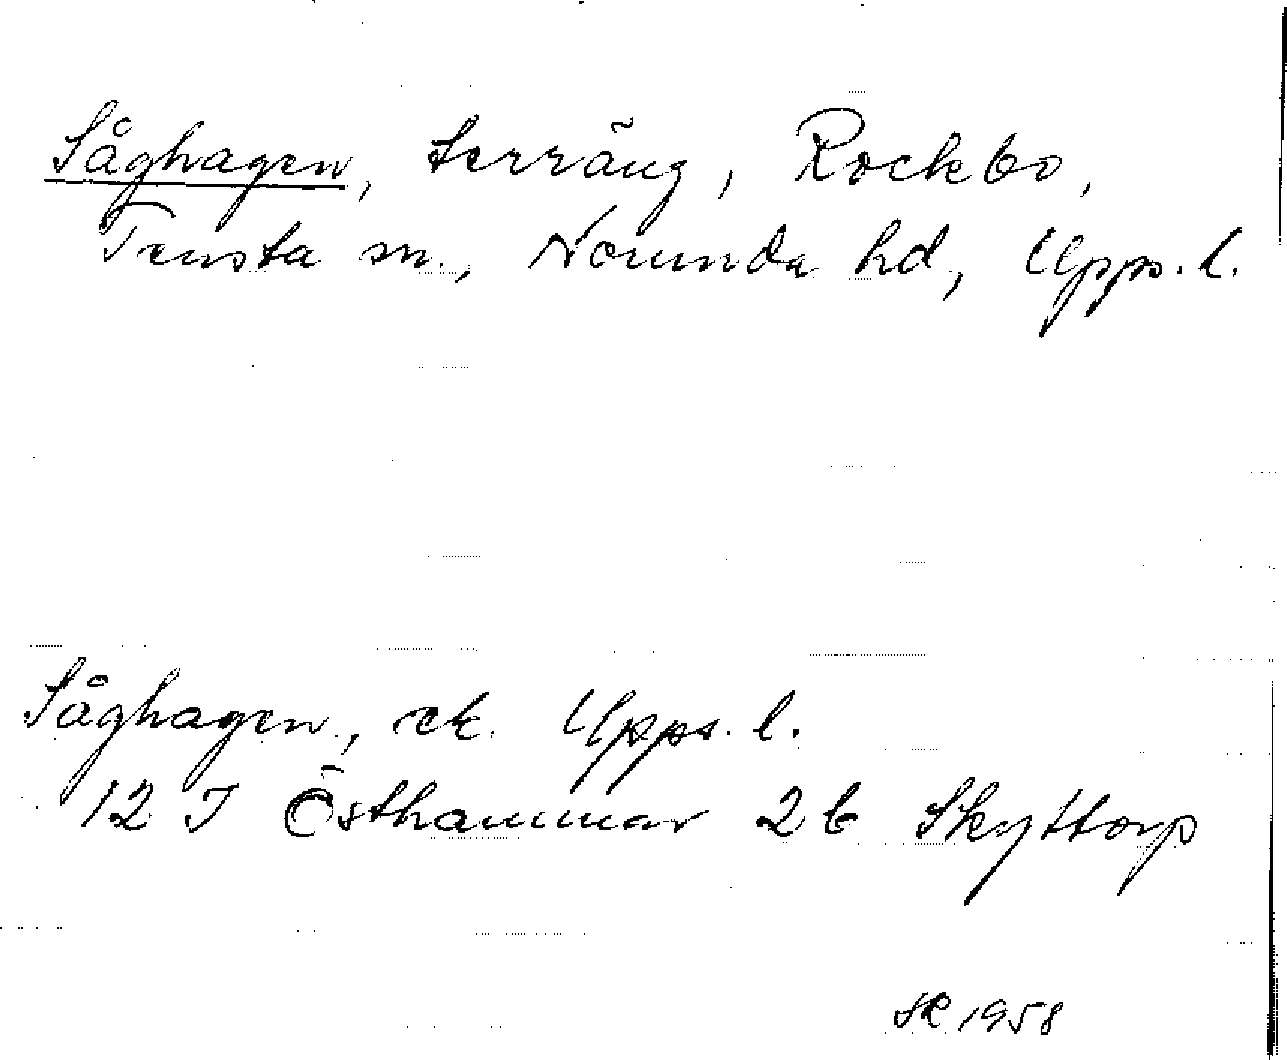 Såghagen, terräng, Rockbo,
Tensta sn., Norunda hd, Upps. l.
Såghagen, ek. Upps. l.
12 I Östhammar 2b Skyttorp
1958